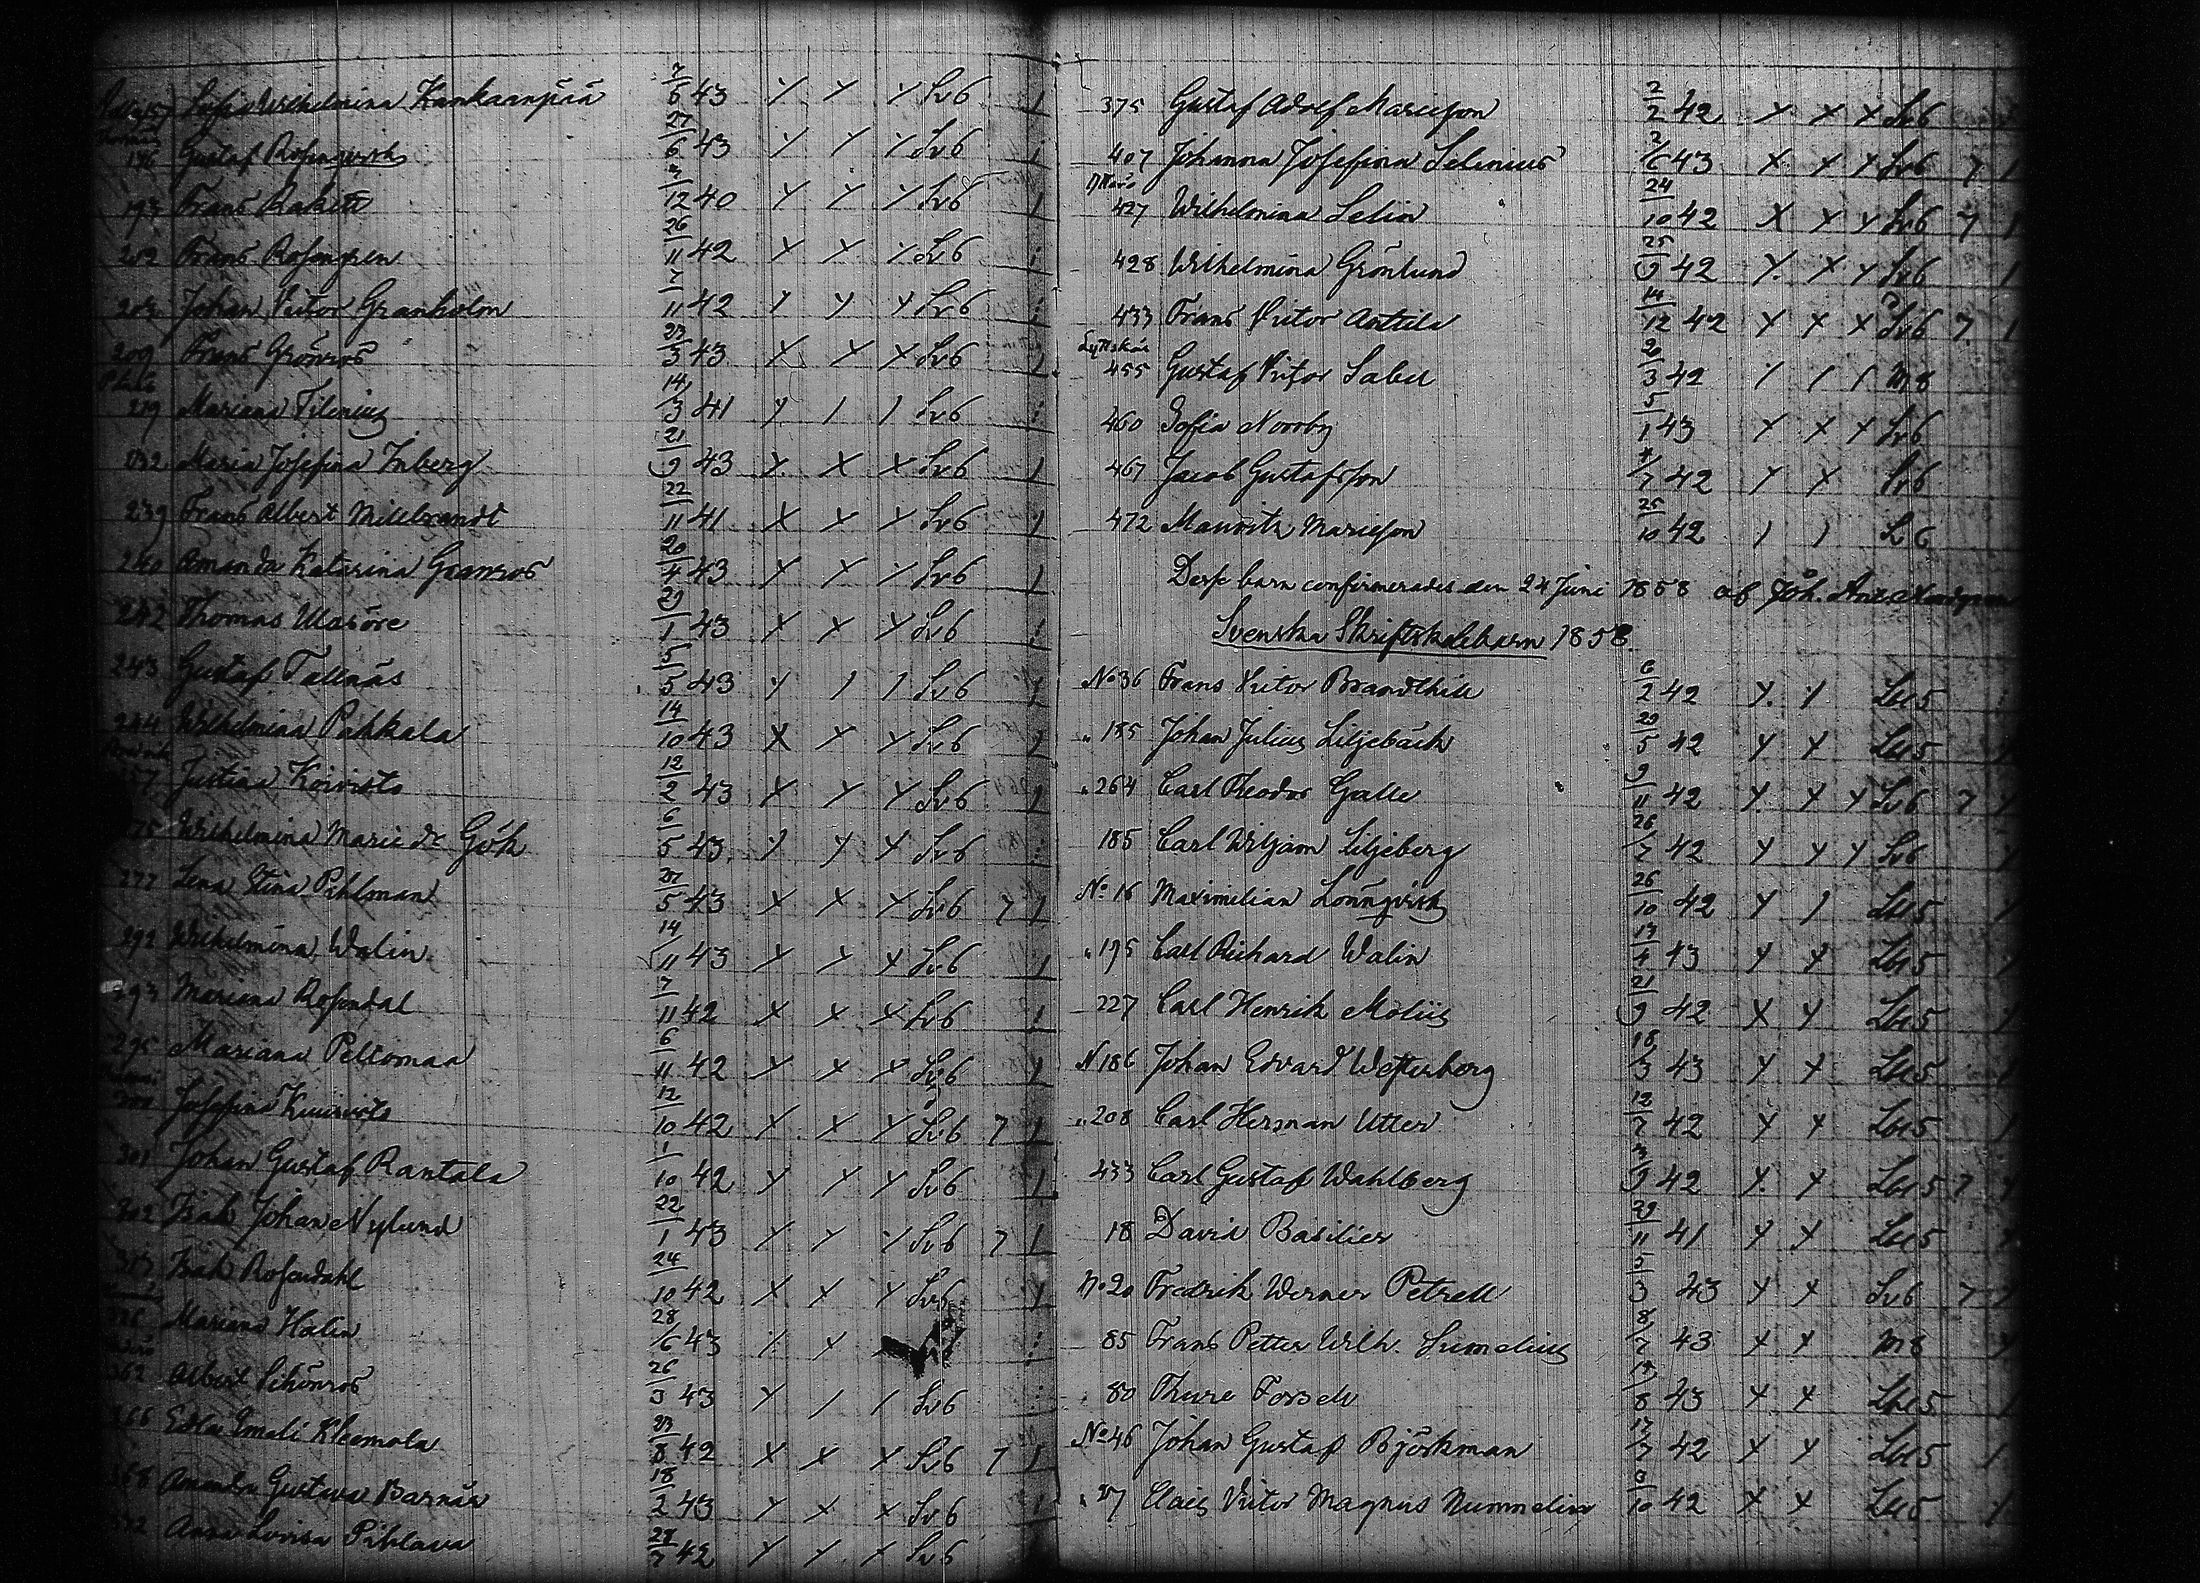 Sofia Wilhelmina Kankaanpää 7/6 43 Sv6
176 Gustaf Rosenqvist 27/6 43 Sv6
193 Frans Rakett 12 40 Sv6
202 Frans Rosengren 26/11 42 Sv6
203 Johan Victor Granholm 7/11 42 Sv6
209 Frans Grönroos 23/3 43 Sv6
219 Mariana Filenius 14/3 41 Sv6
232 Maria Josefina Inberg 21/9 43 Sv6
239 Frans Albert Millbrandt 22/11 41 Sv6
240 Amanda Katarina Granroos 20/4 43 Sv6
242 Thomas Ulasöre 29/1 43 Sv6
243 Gustaf Tallnäs 5/5 43 Sv6
244 Wilhelmina Pahkala 14/10 43 Sv6
257 Justina Koivisto 12/2 43 Sv6
275 Wilhelmina Maria Gök 6/5 43 Sv6
277 Lena Stina Pihlman 27/5 43 Sv6 7
292 Wilhelmina Walin 14/11 43 Sv6
293 Mariana Rosendal 7/11 42 Sv6
295 Mariana Peltomaa 6/11 42 Sv6
300 Josefina 12/10 42 Sv6 7
301 Johan Gustaf Rantala 1/10 42 Sv6
302 Isak Johan Nylund 22/1 43 Sv6 7
313 Isak Rosendahl 24/10 42 Sv6
Mariana Halin 28/6 43
362 Albert Schönroos 26/3 43 Sv6
366 Edla Emeli Kleemola 23/8 42 Sv6 7
368 Amanda Gustava Barnäs 18/2 43 Sv6
372 Anna Lovisa Pihlava 28/7 42 Sv6
375 Gustaf Adolf Mariesson 2/2 42 Sv6
407 Johanna Josefina Selenius 2/6 43 Sv6 7
427 Wilhelmina Selin 24/10 42 Sv6 7
428 Wilhelmina Grönlund 25/9 42 Sv6
433 Frans Victor Anttila 14/12 42 Sv6 7
Lyttskär
455 Gustaf Victor Sabel 20/3 42 M8
460 Sofia Norrby 5/1 43 Sv6
467 Jacob Gustafsson 7 42 Sv6
472 Mauritz Mariesson 25/10 42 L6
Desse barn confirmerades den 24 Juni 1858 af Joh. Ant.
Svenska Skriftskolebarn 1858.
No 36 Frans Victor Brandthill 6/2 42 Lbl5
" 185 Johan Julius Liljebäck 29/5 42 Lbl5
" 264 Carl Theodor Galle 9/11 42 Sv6 7
185 Carl Wiljam Liljeberg 26/7 42 Sv6
No 16 Maximilian Lönnqvist 26/10 42 Lbl5
" 195 Carl Richard Walin 17/4 43 Lbl5
227 Carl Henrik Moliis 21/9 42 Lbl5
N 186 Johan Edvard Westerberg 18/3 43 Lbl5
" 208 Carl Herman Utter 12/7 42 Lbl5
433 Carl Gustaf Wahlberg 3/9 42 Lbl5 7
18 David Basilier 29/11 41 Lbl5
No 20 Fredrik Werner Petrell 5/3 43 Sv6 7
85 Frans Petter Wilh. Sumelius 8/7 43 M8
80 Thure Forsell 8 43 Lbl5
No 46 Johan Gustaf Björkman 17/7 42 Lbl5
" 27 Claes Victor Magnus Nummelin 9/10 42 Lbl5